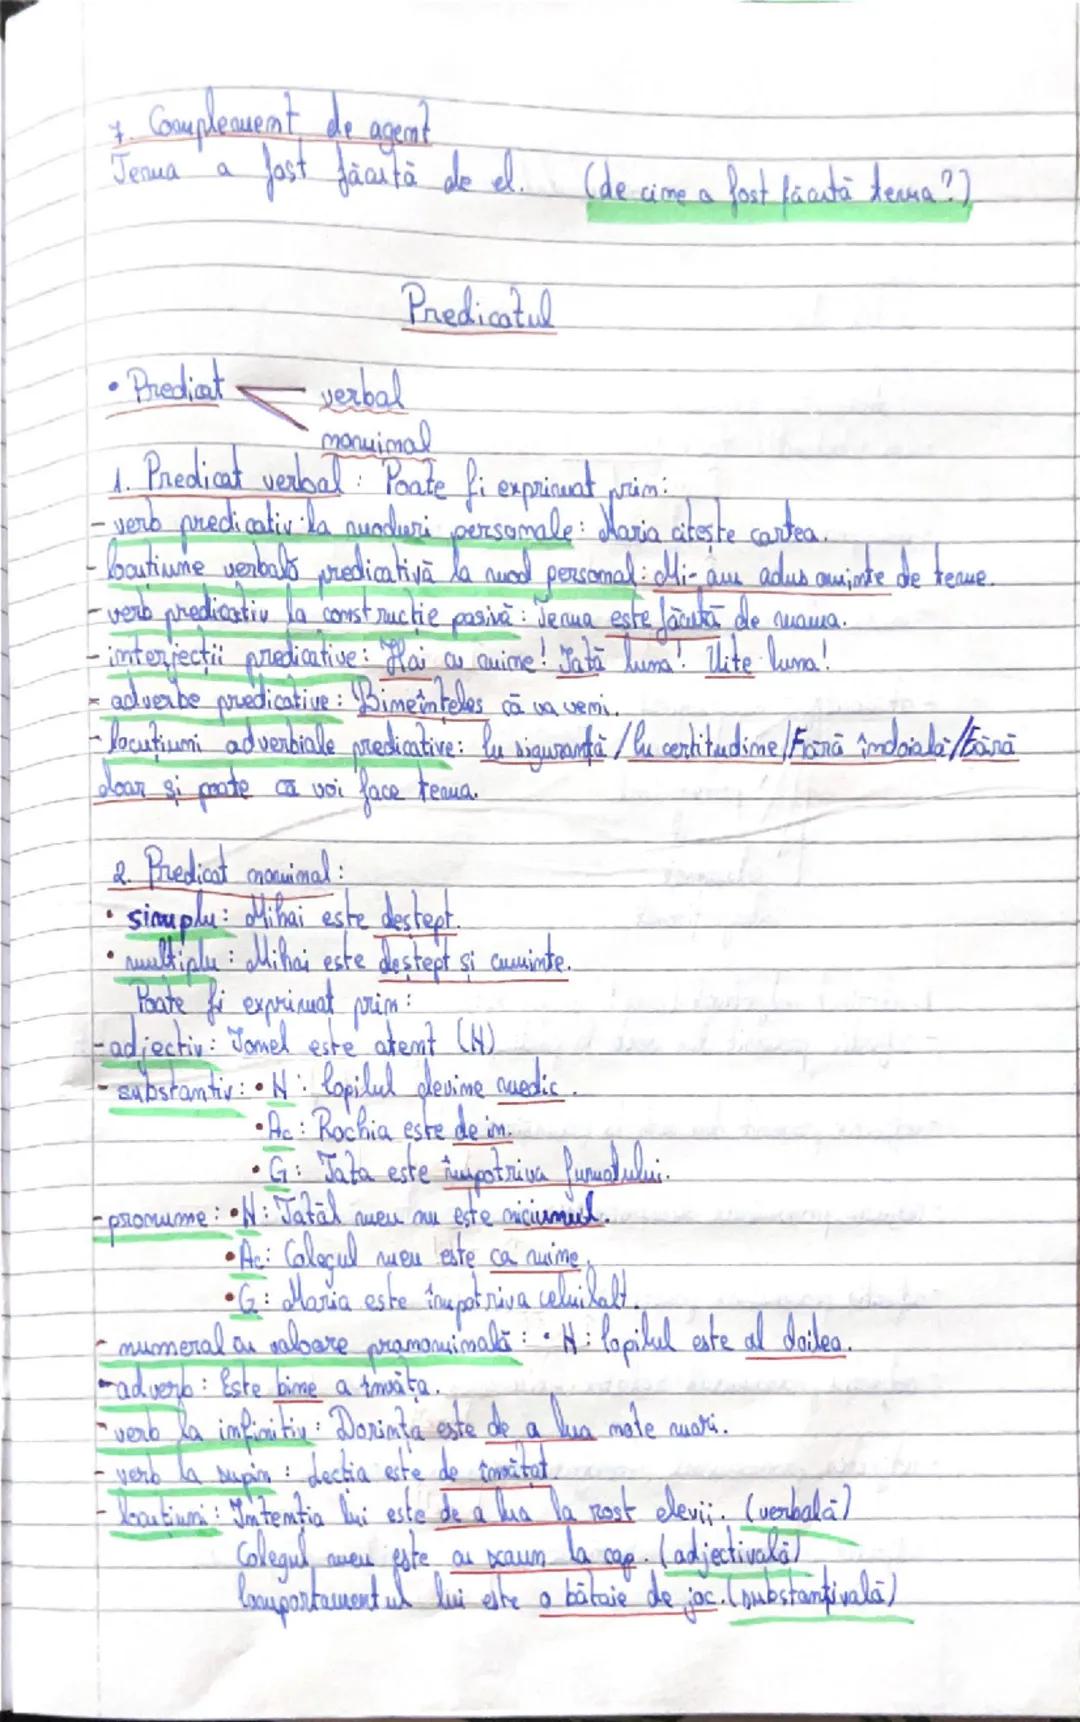 7. Complement de agent
Tema a fost făcută de el. (de cine a fost făcută tema?)
Predicatul
• Predicat verbal
nominal
1. Predicat verbal: Poate fi exprimat prin:
- verb predicativ la moduri personale: Maria citește cartea.
- locuțiune verbală predicativă la mod personal: Mi-am adus aminte de teme.
- verb predicativ la construcție pasivă: Tema este făcută de mama.
- interjecții predicative: Hai cu mine! Iată luna! Uite luna!
- adverbe predicative: Bineînțeles că va veni.
- locuțiuni adverbiale predicative: Cu siguranță / Cu certitudine / Fără îndoială / Fără
doar și poate că voi face tema.
2. Predicat nominal:
• simplu: Mihai este deștept.
• multiplu: Mihai este deștept și cuminte.
Poate fi exprimat prin:
- adjectiv: Ionel este atent (N)
- substantiv: • N: Copilul devine medic.
• Ac: Rochia este de in.
• G: Tata este împotriva fumatului.
- pronume: • N: Tatăl meu nu este niciunul.
• Ac: Colegul meu este ca mine.
• G: Maria este împotriva celuilalt.
- numeral cu valoare pronominală: • N: Copilul este al doilea.
- adverb: Este bine a învăța.
- verb la infinitiv: Dorința este de a lua note mari.
- verb la supin: Lecția este de învățat.
- locuțiuni: Intenția lui este de a lua la rost elevii. (verbală)
Colegul meu este cu scaun la cap. (adjectivală)
Comportamentul lui este o bătaie de joc. (substantivală)